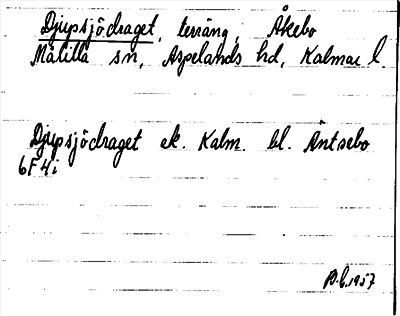 Djupsjödraget, terräng, Åkebo
Målilla sn, Aspelands hd, Kalmar l.
Djupsjödraget ek. Kalm. bl. Äntsebo
6F4i
1957